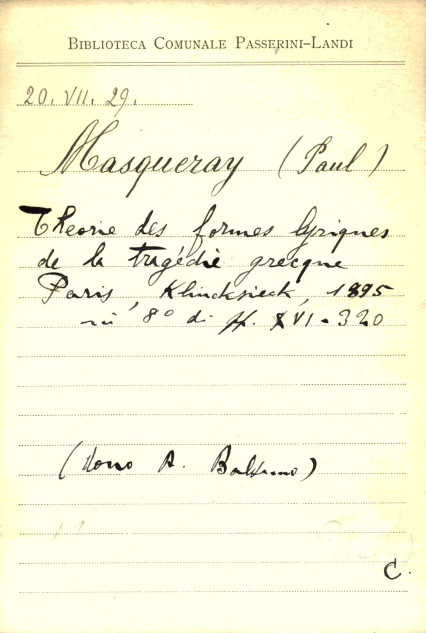 BIBLIOTECA COMUNALE PASSERINI-LANDI
20. VII. 29.
Masqueray (Paul)
Théorie des formes lyriques
de la tragédie grecque
Paris, Klincksieck, 1895
in 8° di pp. XVI-320
(Dono A.
C.